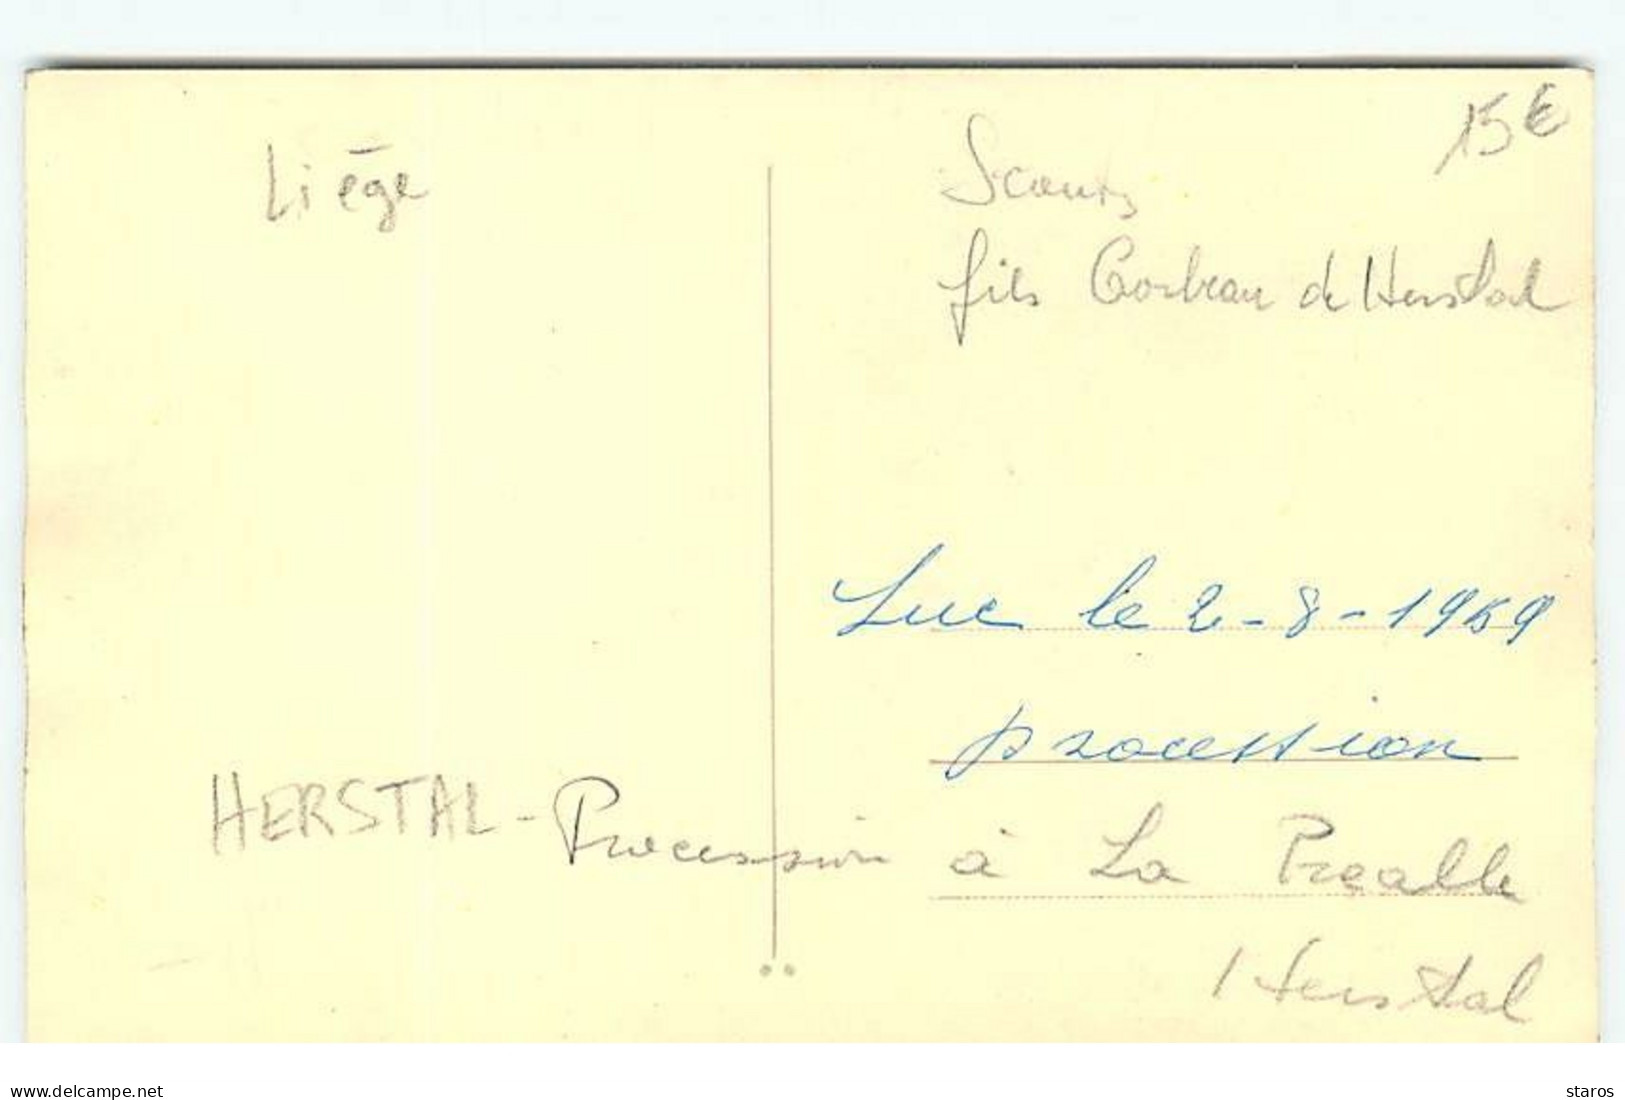 Liège
15€
Scouts
fils Corbeau de Herstal
Luc le 2-8-1959
procession
HERSTAL - Procession à La Préalle
Herstal
delcampe.net
staros